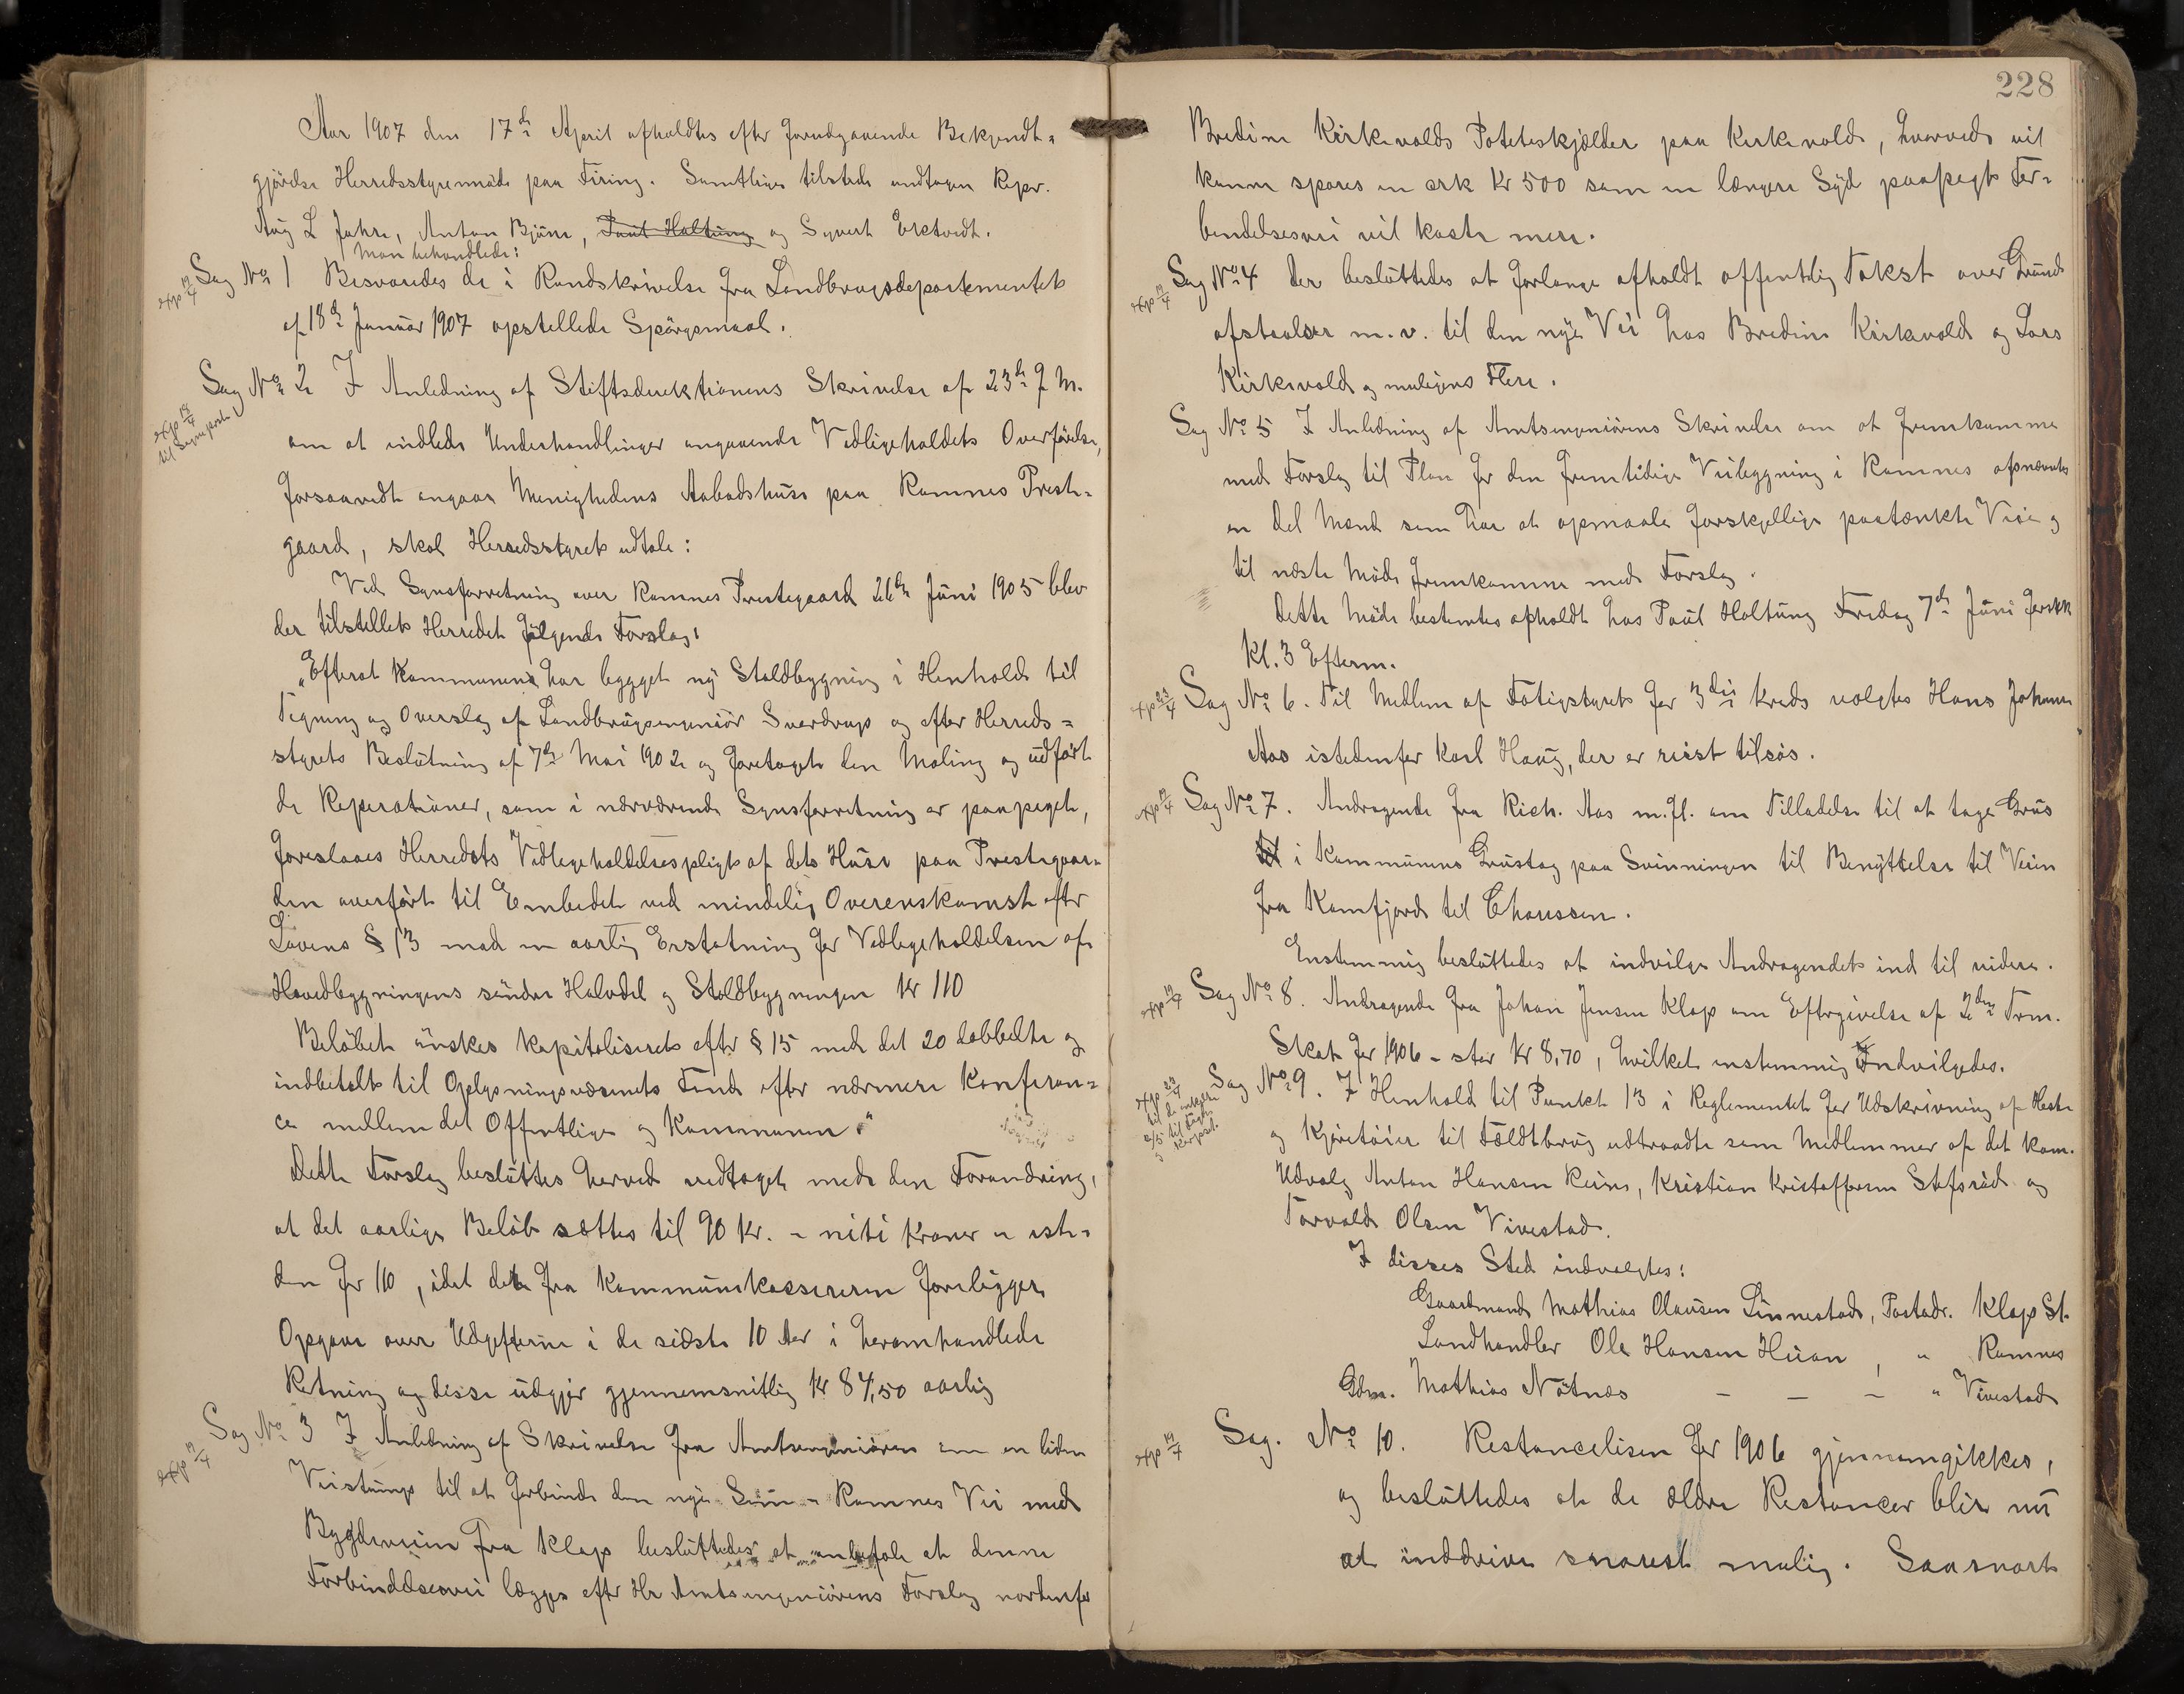 Aar 1907 den 17de April afholdtes efter forudgaaende Bekjendt-
gjörelse Herredsstyremöde paa Firing. Samtlige tilstede undtagen Repr.
Aug L Jahre, Anton Bjune, Paul Holtung og Syvert Erktvedt.
Man behandlede:
exp 19/4 Sag No 1 Besvaredes de i Rundskrivelse fra Landbrugsdepartementet
af 18de Januar 1907 opstillede Spörgsmaal.
exp 18/4 til Sogneprest Sag No 2 I Anledning af Stiftsdirektionens Skrivelse af 23de f. M.
om at indlede Underhandlinger angaaende Vedligeholdets Overförelse,
forsaavidt angaar Menighedens Aabodshuse paa Ramnes Prest-
gaard, skal Herredsstyret udtale:
Ved Synsforretning over Ramnes Prestegaard 26de Juni 1905 blev
der tilstillet Herredet fölgende Forslag:
"Efterat Kommunen har bygget ny Staldbygning i Henhold til
Tegning og Overslag af Landbrugsingeniör Sverdrup og efter Herreds-
styrets Beslutning af 7de Mai 1902 og foretaget den Maling og udfört
de Reperationer, som i nærværende Synsforretning er paapeget,
foreslaaes Herredets Vedligeholdelsespligt af dets Huse paa Prestegaar-
den overfört til Embedet ved mindelig Overenskomst efter
Lovens § 13 mod en aarlig Erstatning for Vedligeholdelsen af
Hovedbygningens söndre Halvdel og Staldbygningen Kr 110
Belöbet önskes kapitaliseret efter § 15 med det 20 dobbelte og
indbetalt til Oplysningsvæsenets Fond efter nærmere Konferan-
ce mellem det Offentlige og Kommunen."
Dette Forslag besluttes herved vedtaget med den Forandring,
at det aarlige Belöb sættes til 90 Kr. - niti Kroner - iste-
den for 110, idet der fra Kommunekassereren foreligger
Opgave over Udgifterne i de sidste 10 Aar i heromhandlede
Retning og disse udgjör gjennemsnitlig Kr 84,50 aarlig
exp 19/4 Sag No 3 I Anledning af Skrivelse fra Amtsingeniören om en liden
Veistump til at forbinde den nye Sem - Ramnes Vei med
Bygdeveien fra Klop besluttedes at anbefale at denne
Forbindelsesvei lægges efter Hr Amtsingeniörens Forslag nordenfor
228
Bredine Kirkevolds Poteteskjælder paa Kirkevold, hvorved vil
kunne spares en ark Kr 500 som en længere Syd paapegt For-
bindelsesvei vil koste mere.
exp 19/4 Sag No 4 Der besluttedes at forlange afholdt offentlig Takst over Grund
afstaaelser m.v. til den nye Vei hos Bredine Kirkevold og Lars
Kirkevold og muligens Flere.
Sag No 5 I Anledning af Amtsingeniörens Skrivelse om at fremkomme
med Forslag til Plan for den fremtidige Veibygning i Ramnes opnævntes
en del Mænd som har at opmaale forskjellige paatænkte Veie og
til næste Möde fremkomme med Forslag.
Dette Möde bestemtes afholdt hos Paul Holtung Fredag 7de Juni
Kl. 3 Efterm.
exp 23/4 Sag No 6. Til Medlem af Fatigstyret for 3die Kreds valgtes Hans Johan
Aas istedenfor Karl Haug, der er reist tilsös.
exp 19/4 Sag No 7. Andragende fra Rich. Aas m.fl. om Tilladelse til at tage Grus
til i Kommunens Grustag paa Svinningen til Benyttelse til Veien
fra Ramfjord til Chausseen.
Enstemmig besluttedes at indvilge Andragendet ind til videre.
exp 19/4 Sag No 8. Andragende fra Johan Jensen Klop om Eftergivelse af 2den Term.
Skat for 1906 - stor Kr 8,70, hvilket enstemmig Indvilgedes.
exp 23/4 Sag No 9. I Henhold til Punkt 13 i Reglementet for Udskrivning af Heste
og Kjöretöier til Feldtbrug udtraadte som Medlemmer af det kom.
Udvalg Anton Hansen Reine, Kristian Kristoffersen Stafsröd og
Torvald Olsen Vivestad.
I disses Sted indvalgtes:
Gaardmand Mathias Olausen Linnestad, Postadr. Klop St.
Landhandler Ole Hansen Huan, " Ramnes
Gdm. Mathias Nötnæs - - - " Vivestad
exp 19/4 Sag. No 10. Restancelisen for 1906 gjennemgikkes,
og besluttedes at de ældre Restancer blir nu
at inddrive snarest mulig. Saasnart